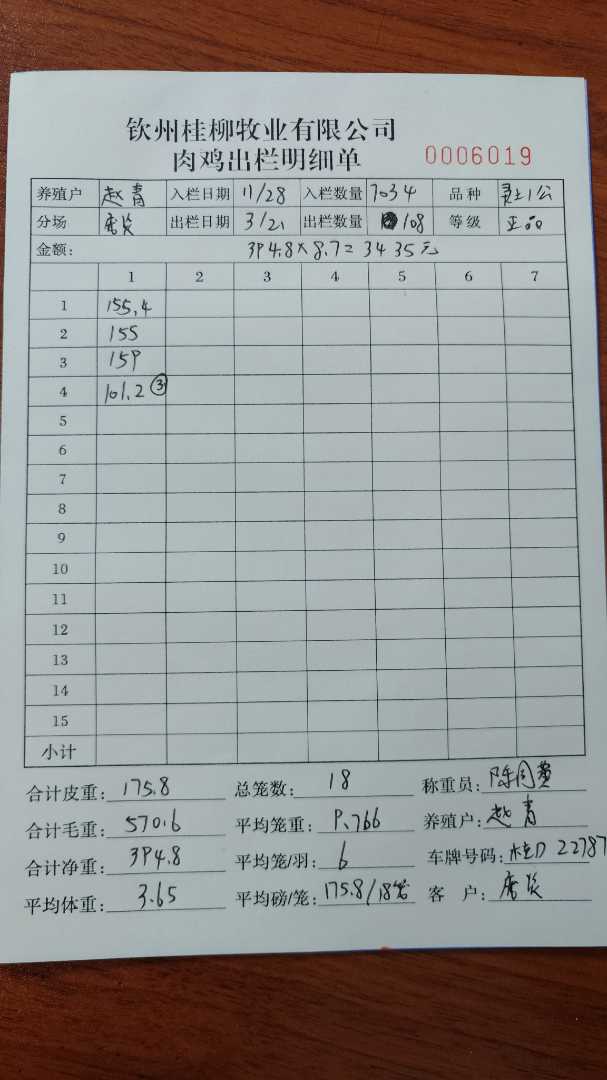 钦州桂柳牧业有限公司
肉鸡出栏明细单 0006019
养殖户 赵青 入栏日期 11/28 入栏数量 7034 品种 灵土1公
分场 出栏日期 3/21 出栏数量 108 等级 正品
金额: 394.8×8.7=3435元
1 2 3 4 5 6 7
1 155.4
2 155
3 159
4 101.2 ③
5
6
7
8
9
10
11
12
13
14
15
小计
合计皮重: 175.8 总笼数: 18 称重员:
合计毛重: 570.6 平均笼重: 9.766 养殖户: 赵青
合计净重: 394.8 平均笼/羽: 6 车牌号码: 桂D 22787
平均体重: 3.65 平均磅/笼: 175.8/18笼 客户: